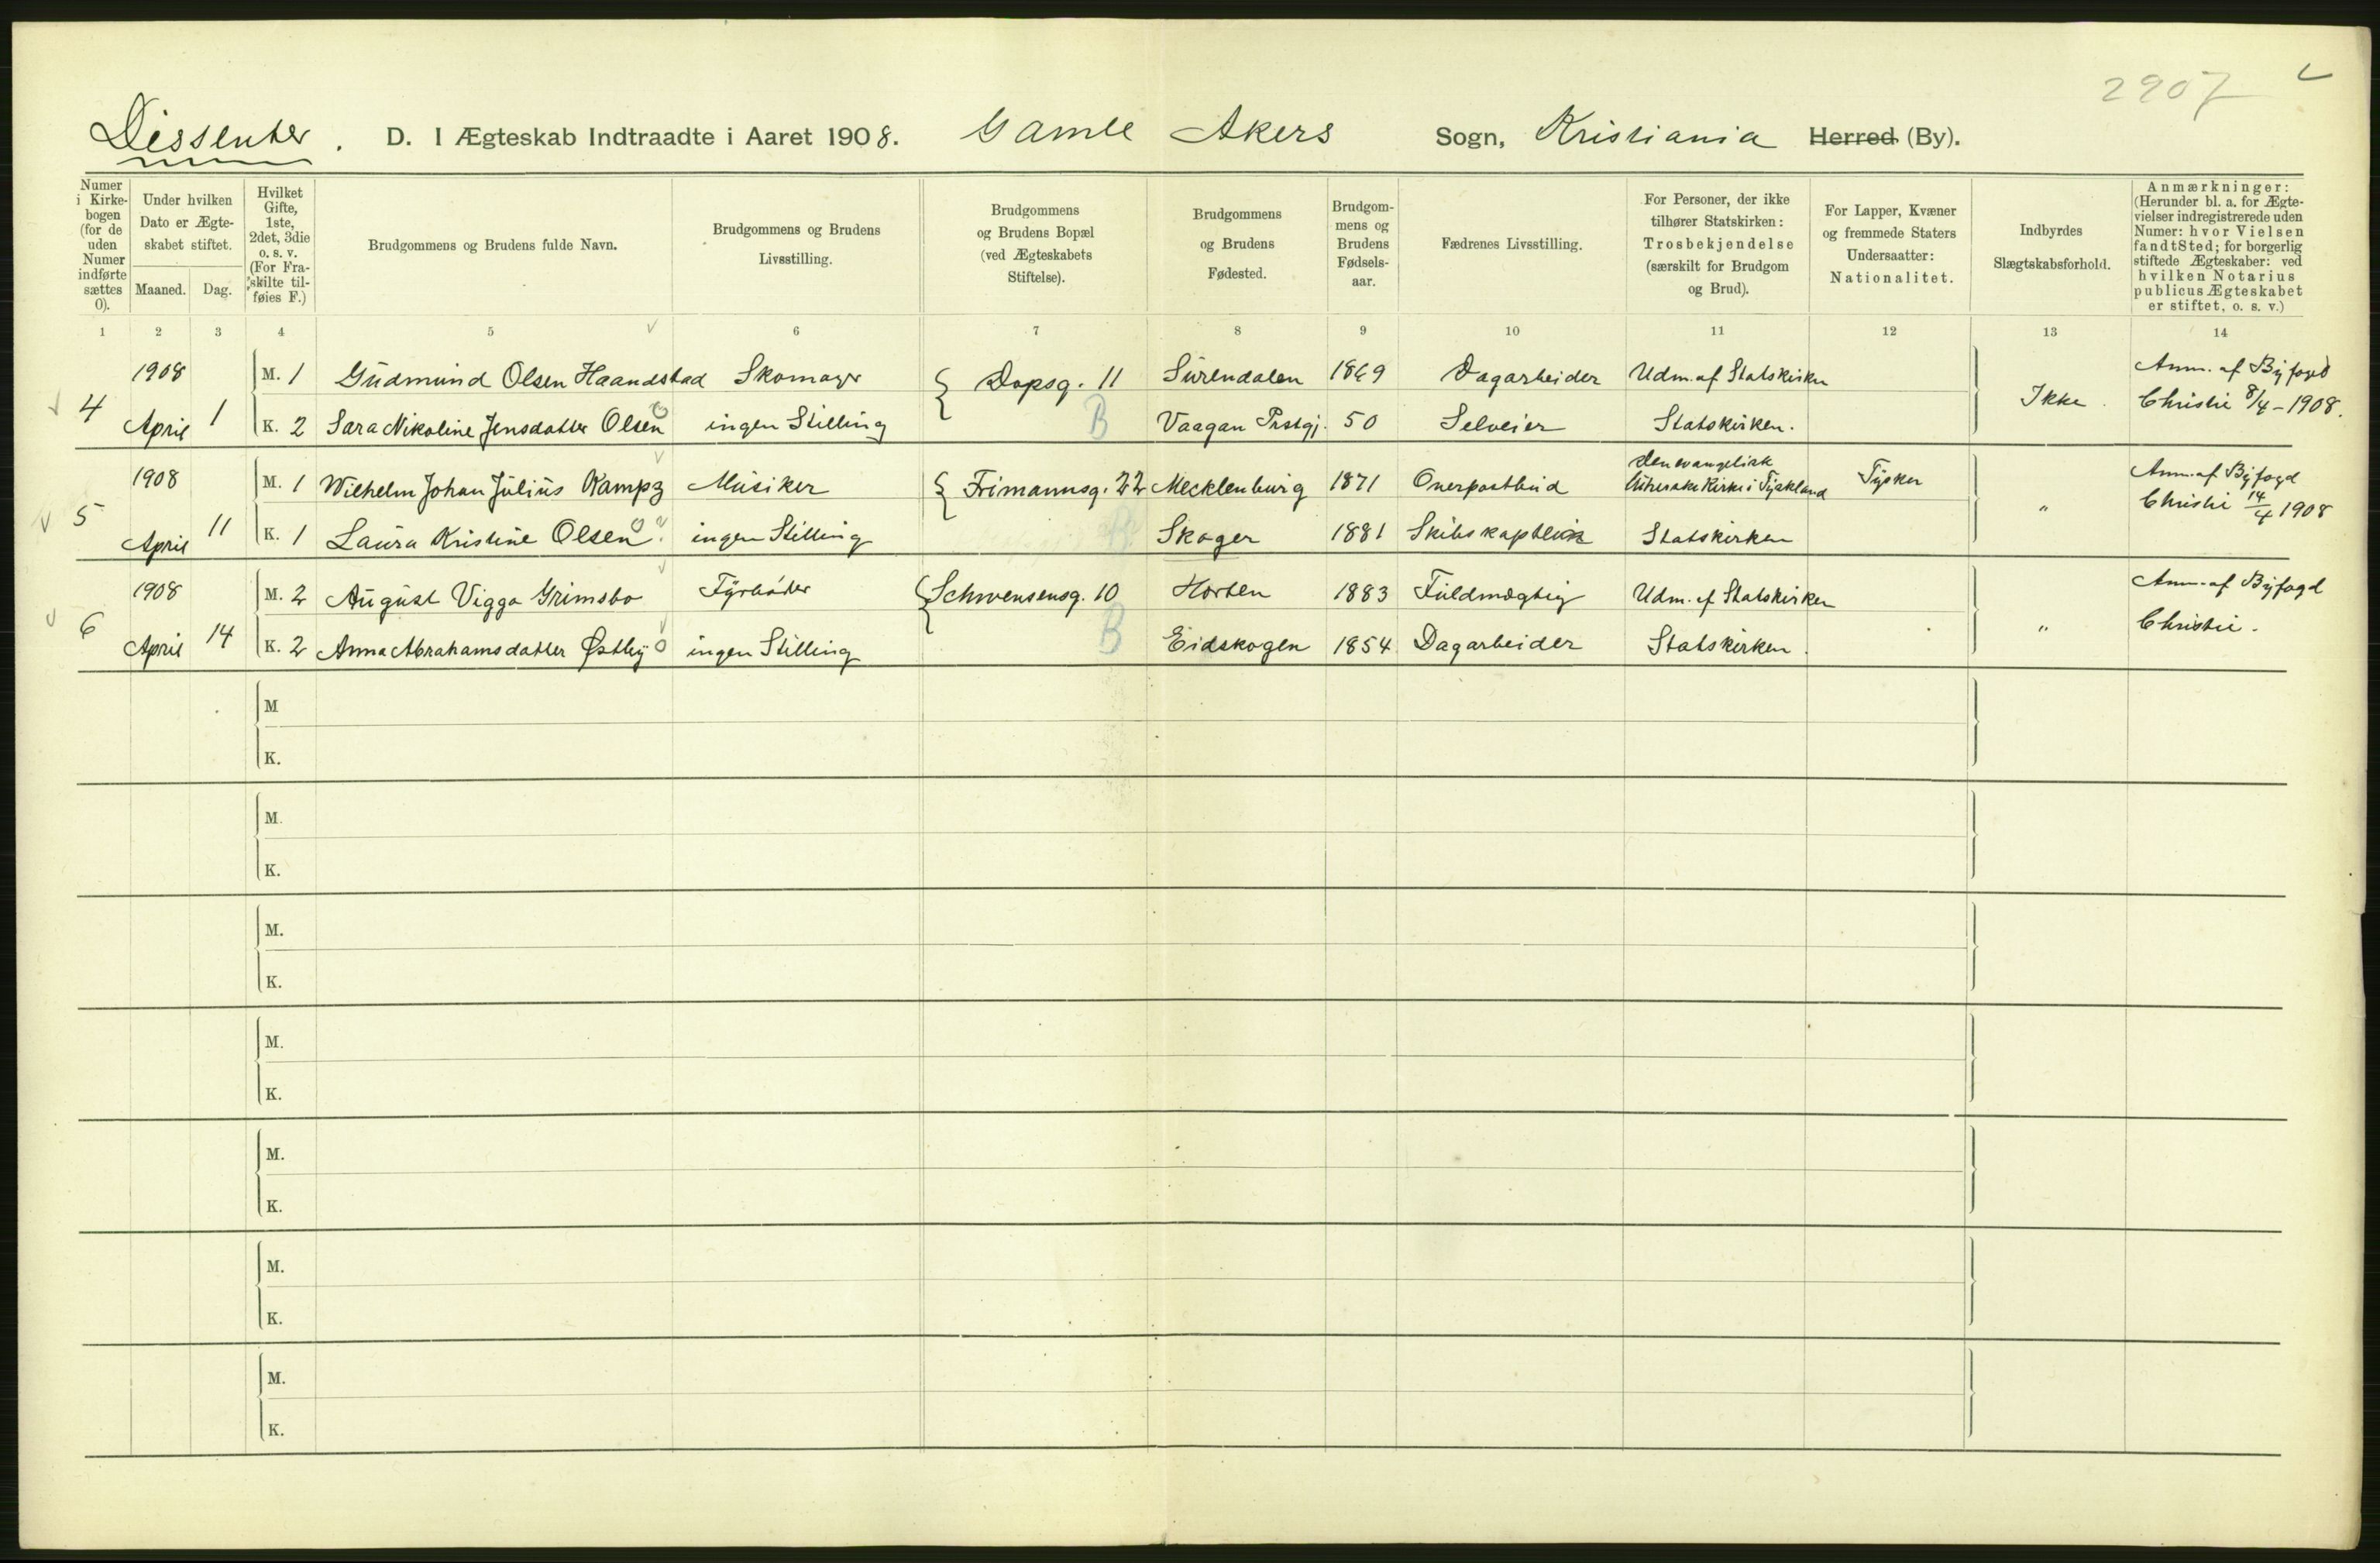 2907
Dissenter. D. I Ægteskab Indtraadte i Aaret 1908. Gamle Akers Sogn, Kristiania Herred (By).
Numer i Kirkebogen (for de uden Numer indførte sættes 0).
Under hvilken Dato er Ægteskabet stiftet.
Maaned. Dag.
Hvilket Gifte, 1ste, 2det, 3die o. s. v. (For Fraskilte tilføies F.)
Brudgommens og Brudens fulde Navn.
Brudgommens og Brudens Livsstilling.
Brudgommens og Brudens Bopæl (ved Ægteskabets Stiftelse).
Brudgommens og Brudens Fødested.
Brudgommens og Brudens Fødselsaar.
Fædrenes Livsstilling.
For Personer, der ikke tilhører Statskirken: Trosbekjendelse (særskilt for Brudgom og Brud).
For Lapper, Kvæner og fremmede Staters Undersaatter: Nationalitet.
Indbyrdes Slægtskabsforhold.
Anmærkninger: (Herunder bl. a. for Ægtevielser indregistrerede uden Numer: hvor Vielsen fandt Sted; for borgerlig stiftede Ægteskaber: ved hvilken Notarius publicus Ægteskabet er stiftet, o. s. v.)
1 2 3 4 5 6 7 8 9 10 11 12 13 14
1908 M. 1 Gudmund Olsen Haandstad Skomager Dopsg. 11 Surendalen 1869 Dagarbeider Udm. af Statskirken Anm. af Byfoged
4 April 1 K. 2 Sara Nikoline Jensdatter Olsen ingen Stilling B Vaagan Prstgj. 50 Selveier Statskirken. Ikke Christie 8/4-1908.
1908 M. 1 Wilhelm Johan Julius Kampz Musiker Frimannsg. 22 Mecklenburg 1871 Overpostbud Den evangelisk lutherske Kirke i Tyskland Tysker Anm. af Byfogd
5 April 11 K. 1 Laura Kristine Olsen ingen Stilling Skoger 1881 Skibskaptein Statskirken " Christie 14/4 1908
1908 M. 2 August Viggo Grimsbo Fyrbøder Schwensensg. 10 Horten 1883 Fuldmægtig Udm. af Statskirken Anm. af Byfogd
6 April 14 K. 2 Anna Abrahamsdatter Østby ingen Stilling B Eidskogen 1854 Dagarbeider Statskirken. " Christie.
M
K.
M.
K.
M.
K.
M.
K.
M.
K.
M.
K.
M.
K.